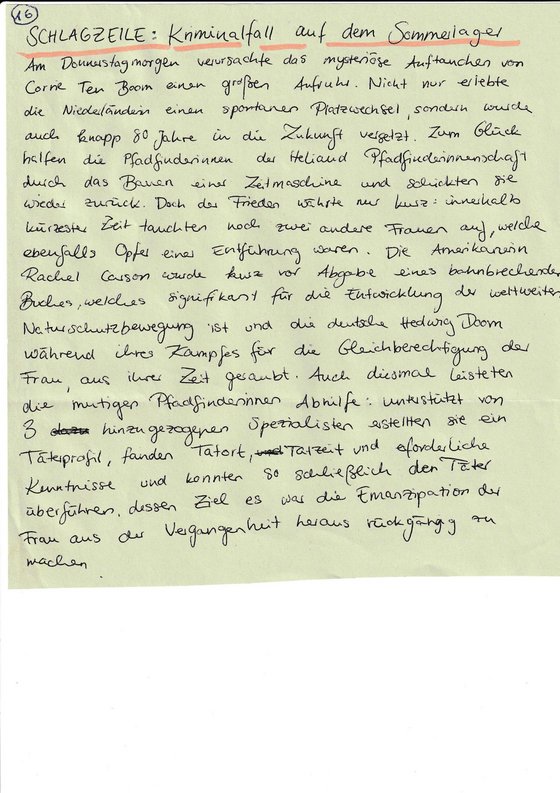 16
SCHLAGZEILE: Kriminalfall auf dem Sommerlager
Am Donnerstagmorgen verursachte das mysteriöse Auftauchen von
Corrie Ten Boom einen großen Aufruhr. Nicht nur erlebte
die Niederländerin einen spontanen Platzwechsel, sondern wurde
auch knapp 80 Jahre in die Zukunft versetzt. Zum Glück
halfen die Pfadfinderinnen der Heliand Pfadfinderinnenschaft
durch das Bauen einer Zeitmaschine und schickten sie
wieder zurück. Doch der Frieden währte nur kurz: innerhalb
kürzester Zeit tauchten noch zwei andere Frauen auf, welche
ebenfalls Opfer einer Entführung waren. Die Amerikanerin
Rachel Carson wurde kurz vor Abgabe eines bahnbrechenden
Buches, welches signifikant für die Entwicklung der weltweiten
Naturschutzbewegung ist und die deutsche Hedwig Doom
während ihres Kampfes für die Gleichberechtigung der
Frau, aus ihrer Zeit geraubt. Auch diesmal leisteten
die mutigen Pfadfinderinnen Abhilfe: unterstützt von
3 hinzugezogenen Spezialisten erstellten sie ein
Täterprofil, fanden Tatort, Tatzeit und erforderliche
Kenntnisse und konnten so schließlich den Täter
überführen, dessen Ziel es war die Emanzipation der
Frau aus der Vergangenheit heraus rückgängig zu
machen